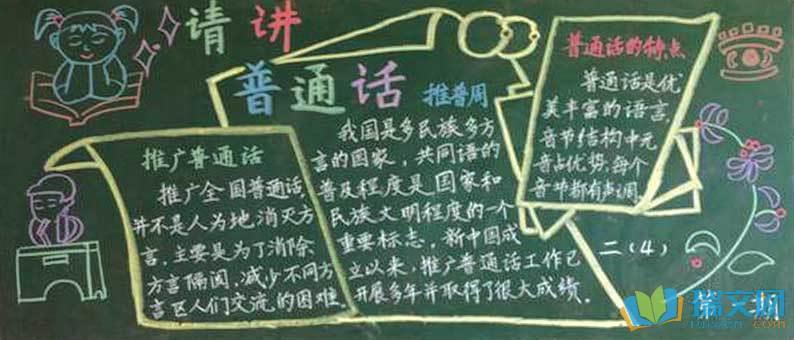 请讲
普通话
推普周
推广普通话
推广全国普通话,
并不是人为地消灭方
言,主要是为了消除
方言隔阂,减少不同方
言区人们交流的困难.
我国是多民族多方
言的国家,共同语的
普及程度是国家和
民族文明程度的一个
重要标志,新中国成
立以来,推广普通话工作已
开展多年并取得了很大成绩.
普通话的特点
普通话是优
美丰富的语言,
音节结构中元
音占优势,每个
音节都有声调.
二(4)
瑞文网